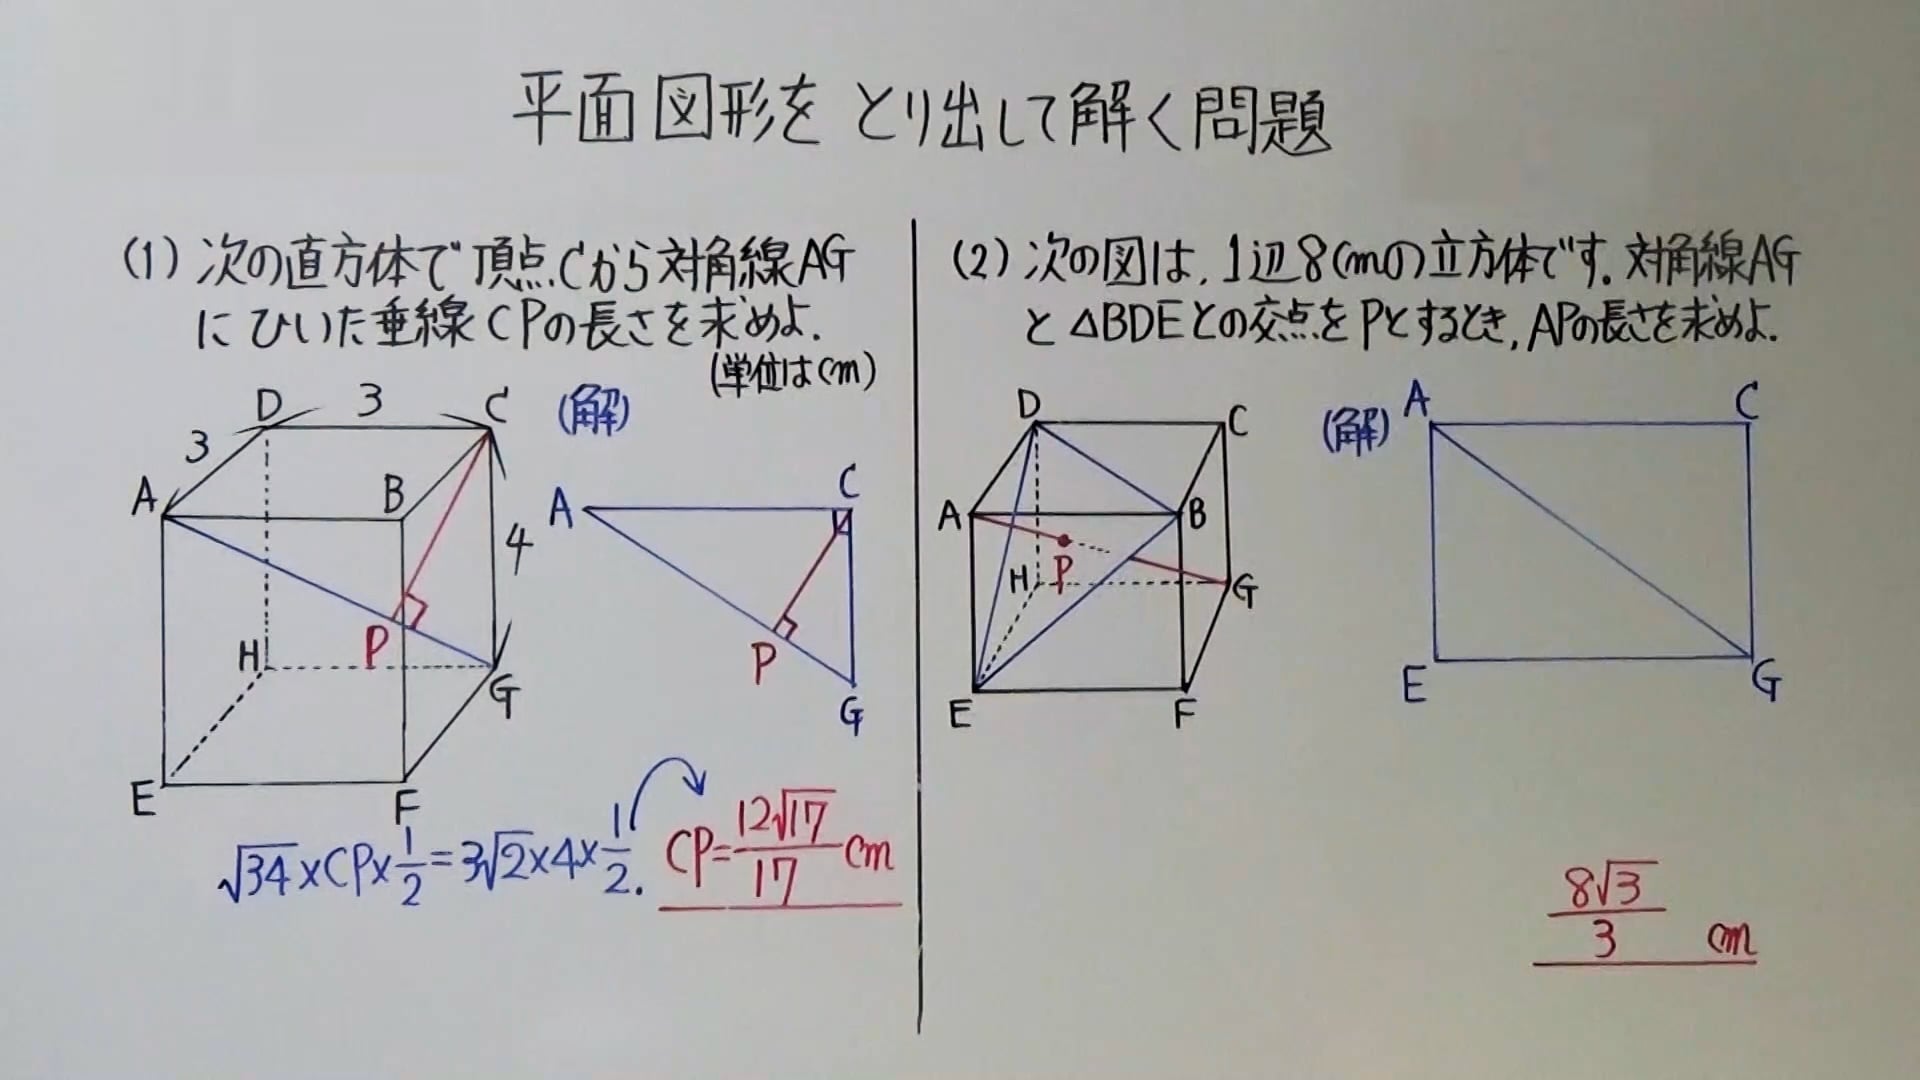 平面図形をとり出して解く問題
(1) 次の直方体で頂点Cから対角線AG
にひいた垂線CPの長さを求めよ.
(単位はcm)
D 3 C
3
A B
4
P
H
G
E
F
(解)
A C
P
G
√34×CP×1/2=3√2×4×1/2.
CP=12√17/17 cm
(2) 次の図は,1辺8cmの立方体です.対角線AG
と△BDEとの交点をPとするとき,APの長さを求めよ.
D C
A B
H P G
E F
(解)
A C
E G
8√3/3 cm